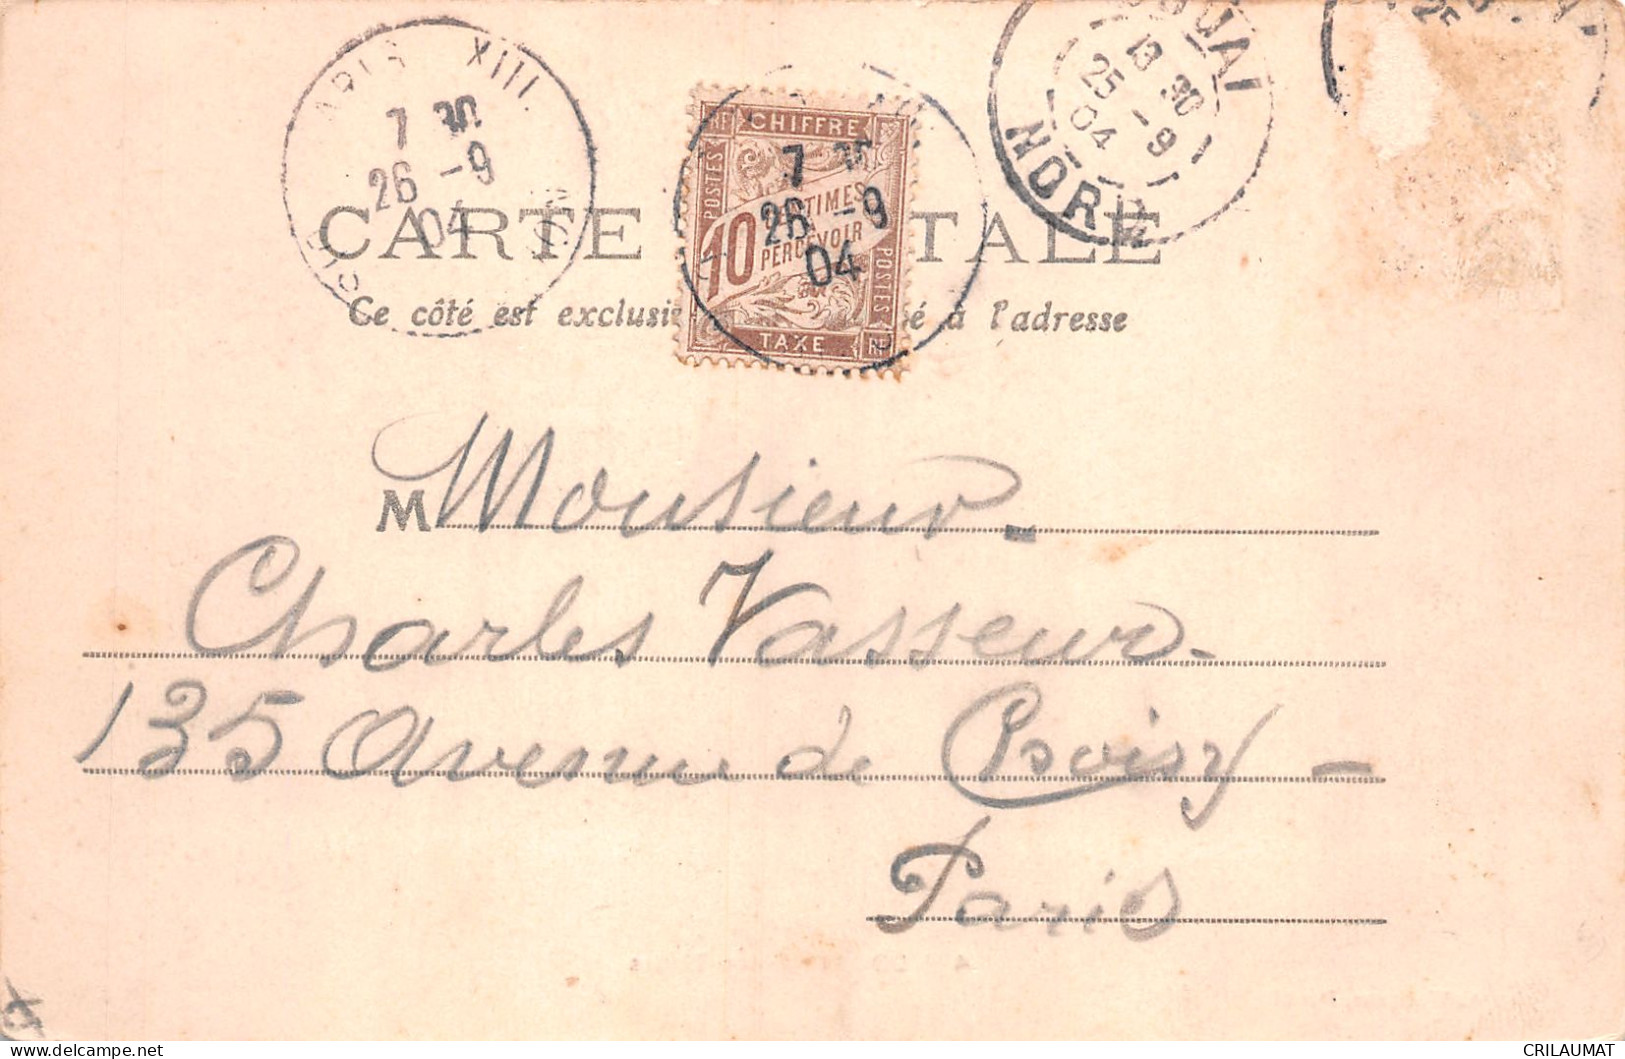 PARIS XIII.
7 30
26 -9
04
DOUAI
13 30
25 -9
04
NORD
25
RF CHIFFRE
POSTES
7
26 -9
04
10 CENTIMES
A
PERCEVOIR
POSTES
TAXE RF
CARTE POSTALE
Ce côté est exclusi é à l'adresse
M Monsieur
Charles Vasseur
135 Avenue de Choisy
Paris
CRILAUMAT